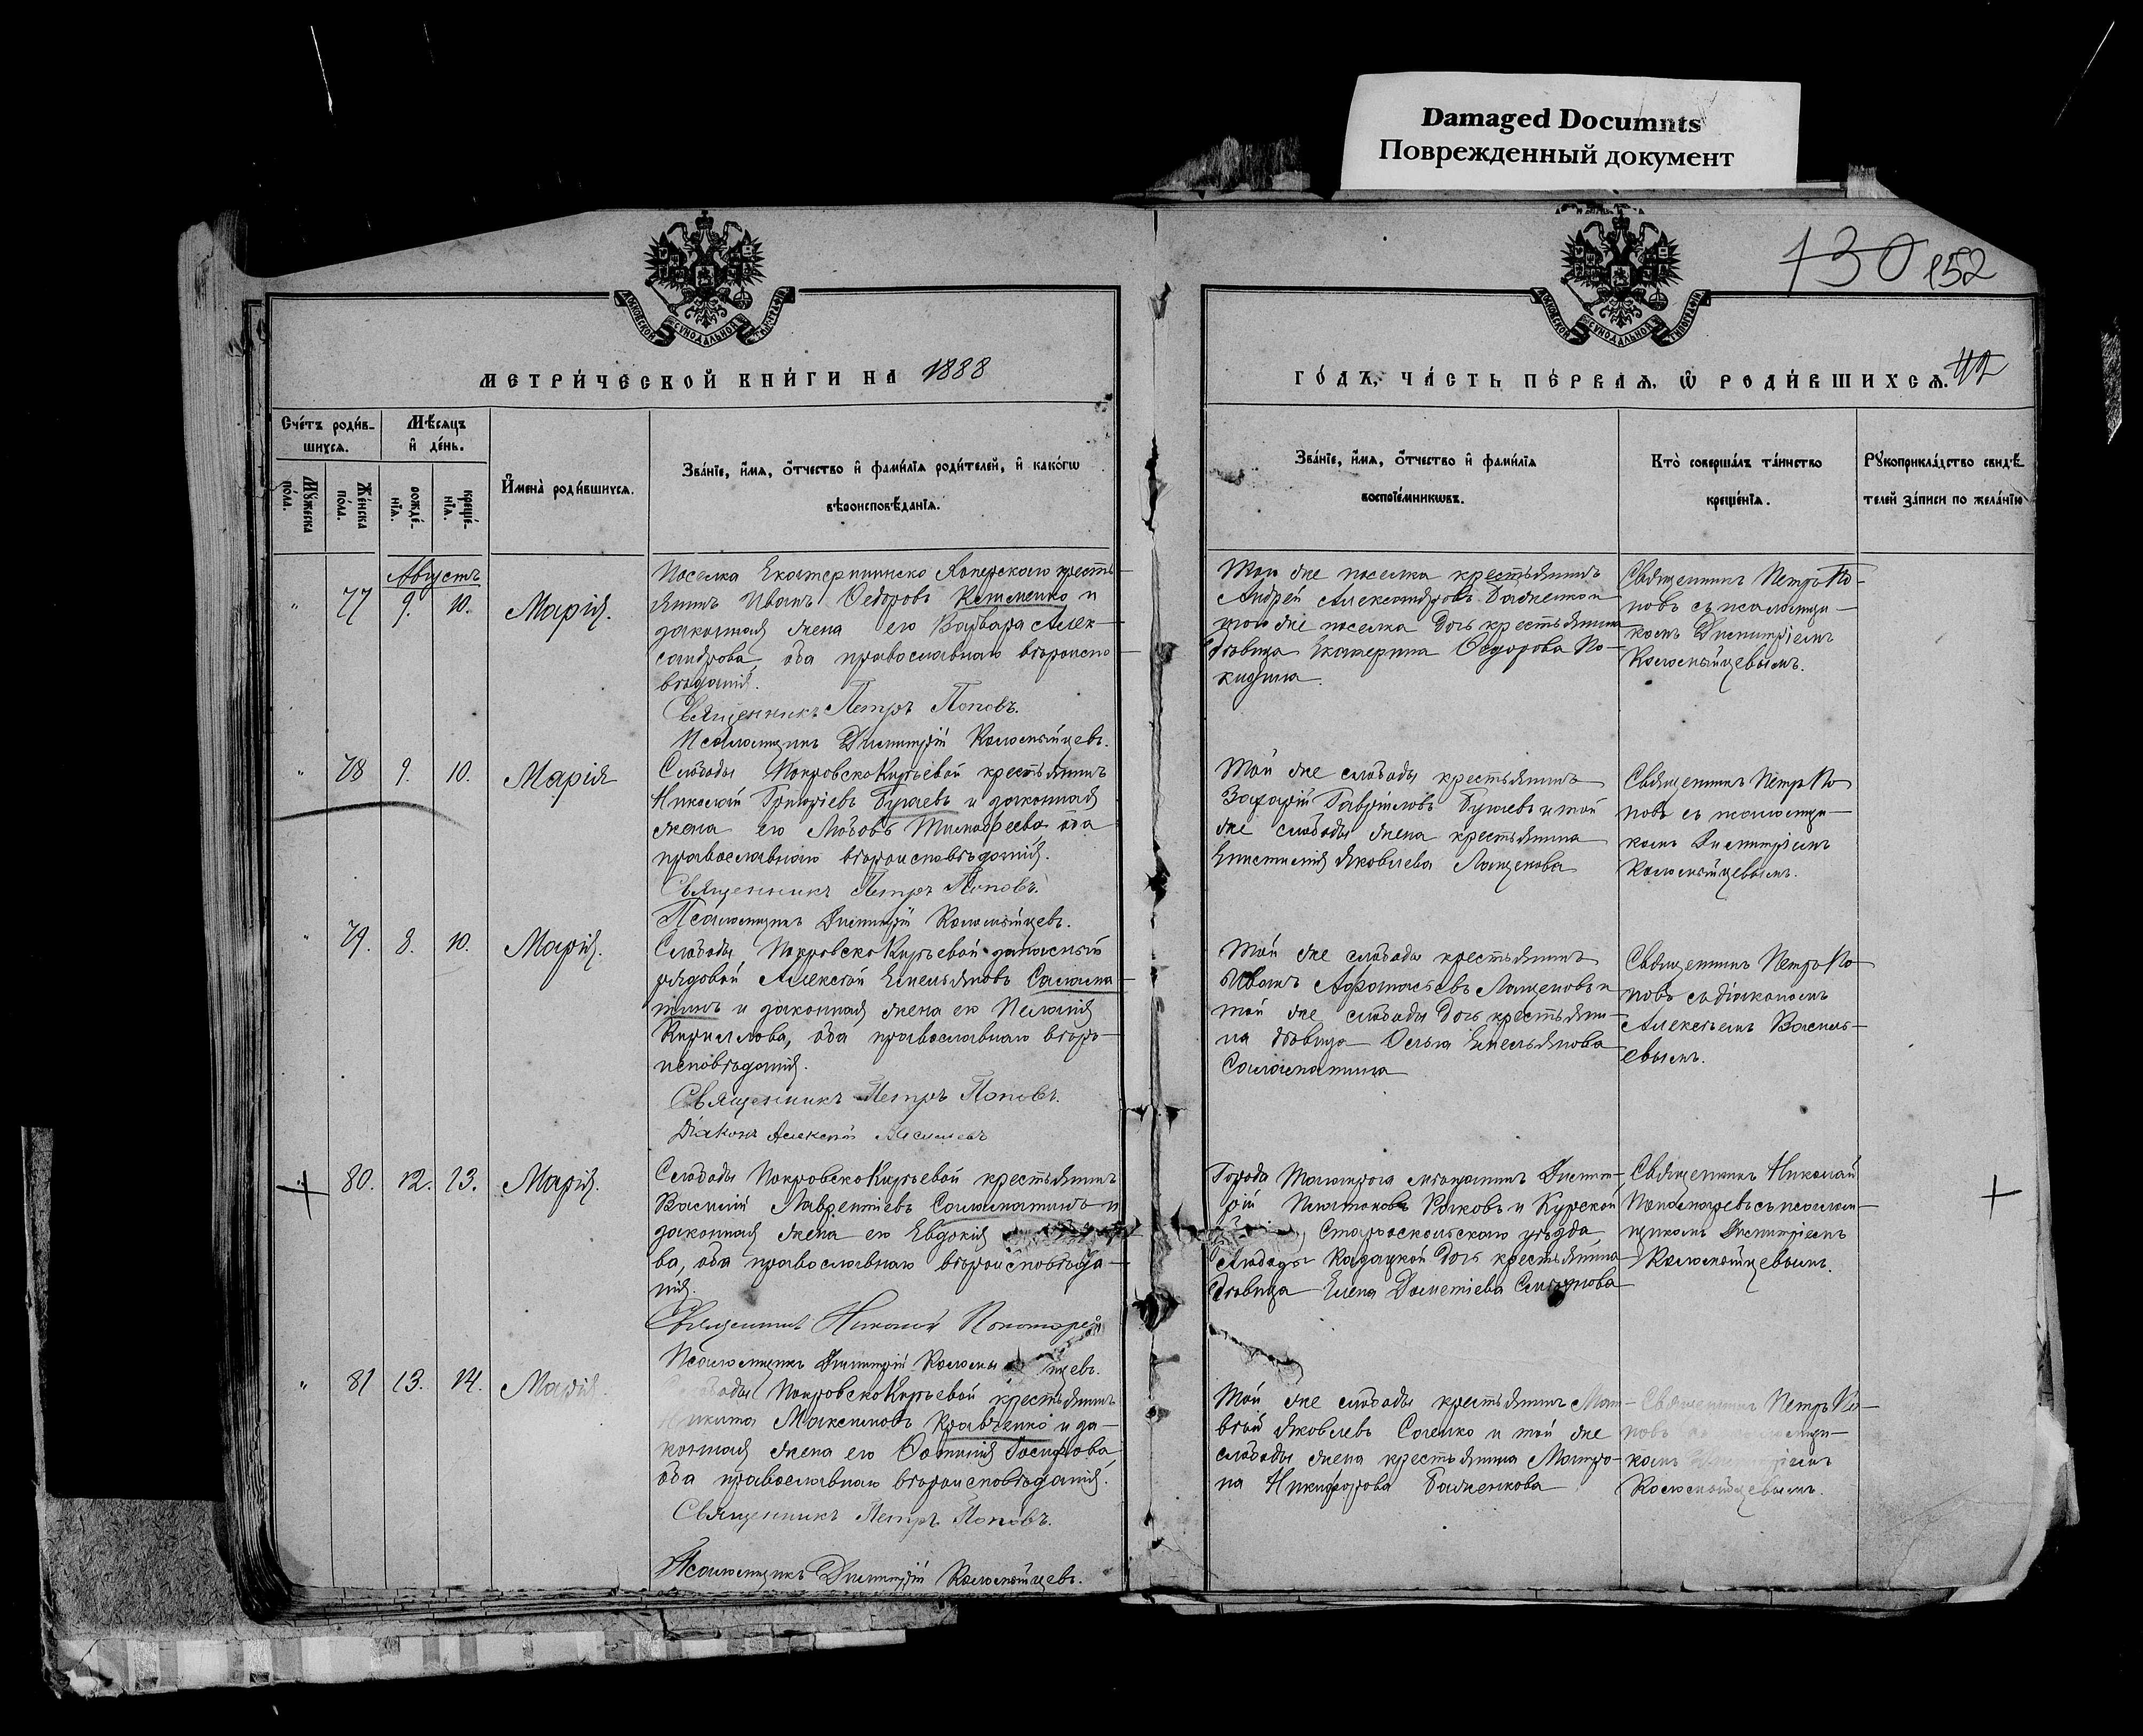 Damaged Documnts
Поврежденный документ
130 152
МОСКОВСКОЙ СѴНОДАЛЬНОЙ ТИПОГРАФІИ
МОСКОВСКОЙ СѴНОДАЛЬНОЙ ТИПОГРАФІИ
МЕТРИ́ЧЕСКОЙ КНИ́ГИ НА 1888
ГО́ДЪ, ЧА́СТЬ ПЕ́РВАЯ, Ѡ҆ РОДИ́ВШИХСЯ. 42
Сче́тъ роди́в-
шихся.
Мѣ́сяцъ
и҆ де́нь.
Мꙋ́жеска по́ла.
Же́нска по́ла.
рожде́-
нїя.
креще́-
нїя.
И҆мена̀ роди́вшихся.
Зва́нїе, и҆́мя, ѻ҆́тчество и҆ фами́лїя роди́телей, и҆ како́гѡ
вѣроисповѣ́данїя.
Зва́нїе, и҆́мя, ѻ҆́тчество и҆ фами́лїя
воспрїе́мникѡвъ.
Кто̀ соверша́лъ та́инство
креще́нїя.
Рꙋкоприкла́дство свидѣ́-
телей за́писи по жела́нїю
Августъ
" 77 9. 10. Марія.
Поселка Екатериннско Хоперскаго кресть-
янинъ Иванъ Федоровъ и
законная жена его Варвара Алек-
сандрова, оба православнаго вѣроиспо-
вѣданія.
Священникъ Петръ Поповъ.
Псаломщикъ Димитрій Коломыйцевъ.
Того же поселка крестьянинъ
Андрей Александровъ Баженко и
того же поселка дочь крестьянина
дѣвица Екатерина Федорова По-
кидина.
Священникъ Петръ По-
повъ съ псаломщи-
комъ Димитріемъ
Коломыйцевымъ.
" 78 9. 10. Марія
Слободы ПокровскоКирѣевой крестьянинъ
Николай Григорієвъ Бугаевъ и законная
жена его Любовь Тимофеева, оба
православнаго вѣроисповѣданія.
Священникъ Петръ Поповъ.
Псаломщикъ Димитрій Коломыйцевъ.
Той же слободы крестьянинъ
Захарій Гавріиловъ Бугаевъ и той
же слободы жена крестьянина
Епистимія Яковлева Лащенова
Священникъ Петръ По
повъ съ псаломщи-
комъ Димитріемъ
Коломыйцевымъ.
" 79. 8. 10. Марія.
Слободы ПокровскоКирѣевой запасный
рядовой Алексѣй Емельяновъ Салама-
тинъ и законная жена его Пелагія
Кириллова, оба православнаго вѣро-
исповѣданія.
Священникъ Петръ Поповъ.
Діаконъ Алексѣй Васильевъ
Той же слободы крестьянинъ
Иванъ Афанасьевъ Лащеновъ и
той же слободы дочь крестьяни-
на дѣвица Ольга Емельянова
Саламатина
Священникъ Петръ По-
повъ съ діакономъ
Алексѣемъ Василь-
евымъ.
" 80. 12. 13. Марія.
Слободы ПокровскоКирѣевой крестьянинъ
Василій Лаврентіевъ Саламатинъ и
законная жена его Евдокія
ва, оба православнаго вѣроисповѣда-
нія.
Священникъ Николай Пономаревъ
Псаломщикъ Димитрій Коломы цевъ.
Города Таганрога мѣщанинъ Димит-
рій Платоновъ Рыковъ и Курской
Старооскольскаго уѣзда,
слободы Казацкой дочь крестьянина
дѣвица Елена Дометіева
Священникъ Николай
Пономаревъ съ псалом-
щикомъ Димитріемъ
Коломыйцевымъ.
" 81 13. 14. Марія.
Слободы ПокровскоКирѣевой крестьянинъ
Никита Максимовъ Кравченко и за-
конная жена его Фотинія Іосифова
оба православнаго вѣроисповѣданія.
Священникъ Петръ Поповъ.
Псаломщикъ Димитрій Коломыйцевъ.
Той же слободы крестьянинъ Мат-
вѣй Яковлевъ Соленко и той же
слободы жена крестьянина Матро-
на Никифорова Баженкова
Священникъ Петръ По-
повъ съ псаломщи-
комъ Димитріемъ
Коломыйцевымъ.